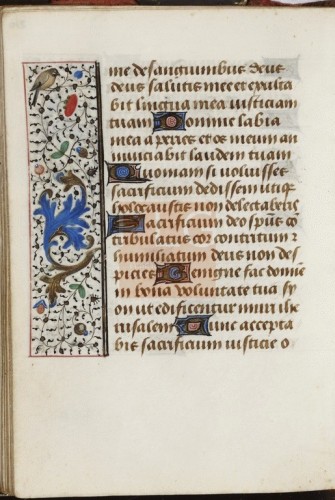 me de sanguinibus deus
deus salutis mee et exulta
bit lingua mea iusticiam
tuam Domine labia
mea aperies et os meum an
nunciabit laudem tuam
Quoniam si voluisses
sacrificium dedissem utiq
holocaustis non delectaberis
Sacrificium deo spūs cō
tribulatus cor contritum ⁊
humiliatum deus non des
picies Benigne fac domine
in bona voluntate tua sy
on ut edificentur muri ihe
rusalem Tunc accepta
bis sacrificium iusticie o